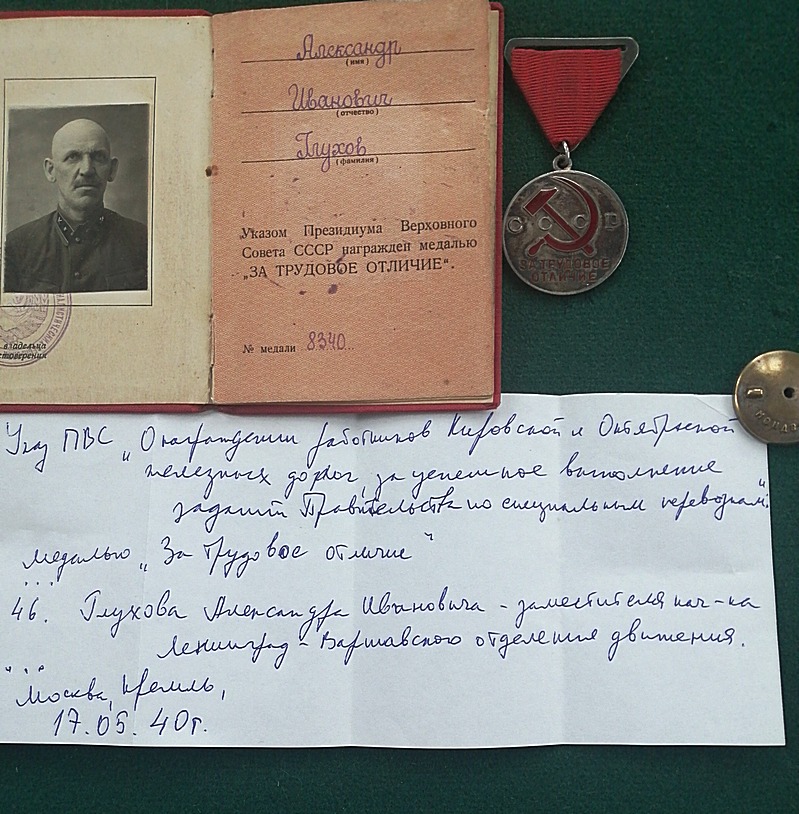 Александр
(имя)
Иванович
(отчество)
Глухов
(фамилия)
Указом Президиума Верховного
Совета СССР награжден медалью
„ЗА ТРУДОВОЕ ОТЛИЧИЕ“.
№ медали 8340
владельца
СССР
ЗА ТРУДОВОЕ
ОТЛИЧИЕ
Указ ПВС „О награждении работников Кировской и Октябрьской
железных дорог за успешное выполнение
заданий Правительства по специальным перевозкам“
медалью „За трудовое отличие“
...
46. Глухова Александра Ивановича - заместителя нач-ка
Ленинград - Варшавского отделения движения.
...
Москва, Кремль,
17.05.40г.